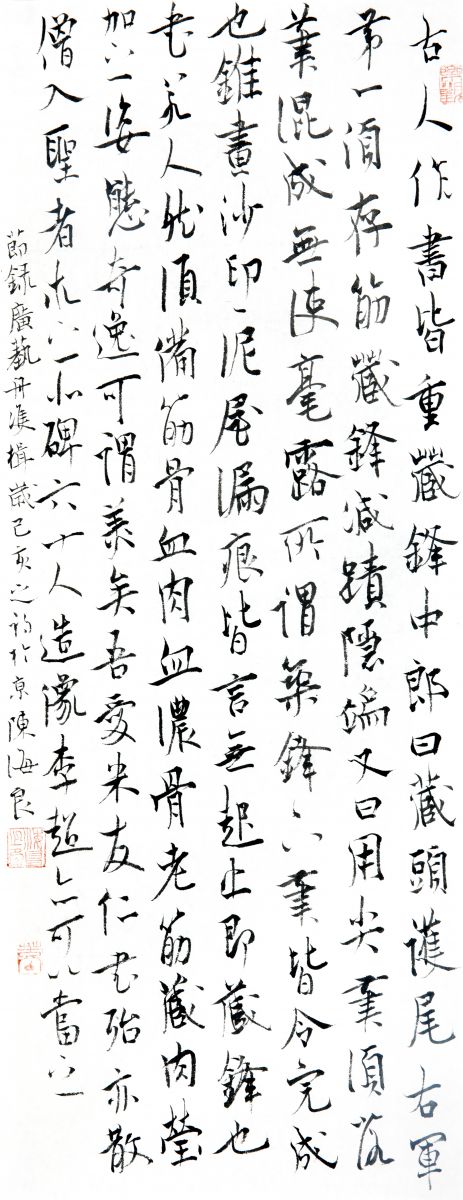 古人作書皆重藏鋒中郎曰藏頭護尾右軍
第一須存筋藏鋒滅蹟隱端又曰用尖筆須落
筆混成無使毫露所謂築鋒下筆皆令完成
也錐畫沙印印泥屋漏痕皆言無起止即藏鋒也
書若人然須備筋骨血肉血濃骨老筋藏肉瑩
加以姿態奇逸可謂美矣吾愛米友仁書殆亦散
僧入聖者求之北碑六十人造像李超亦可以當之
節録廣藝舟雙楫歲己亥之於京陳海良